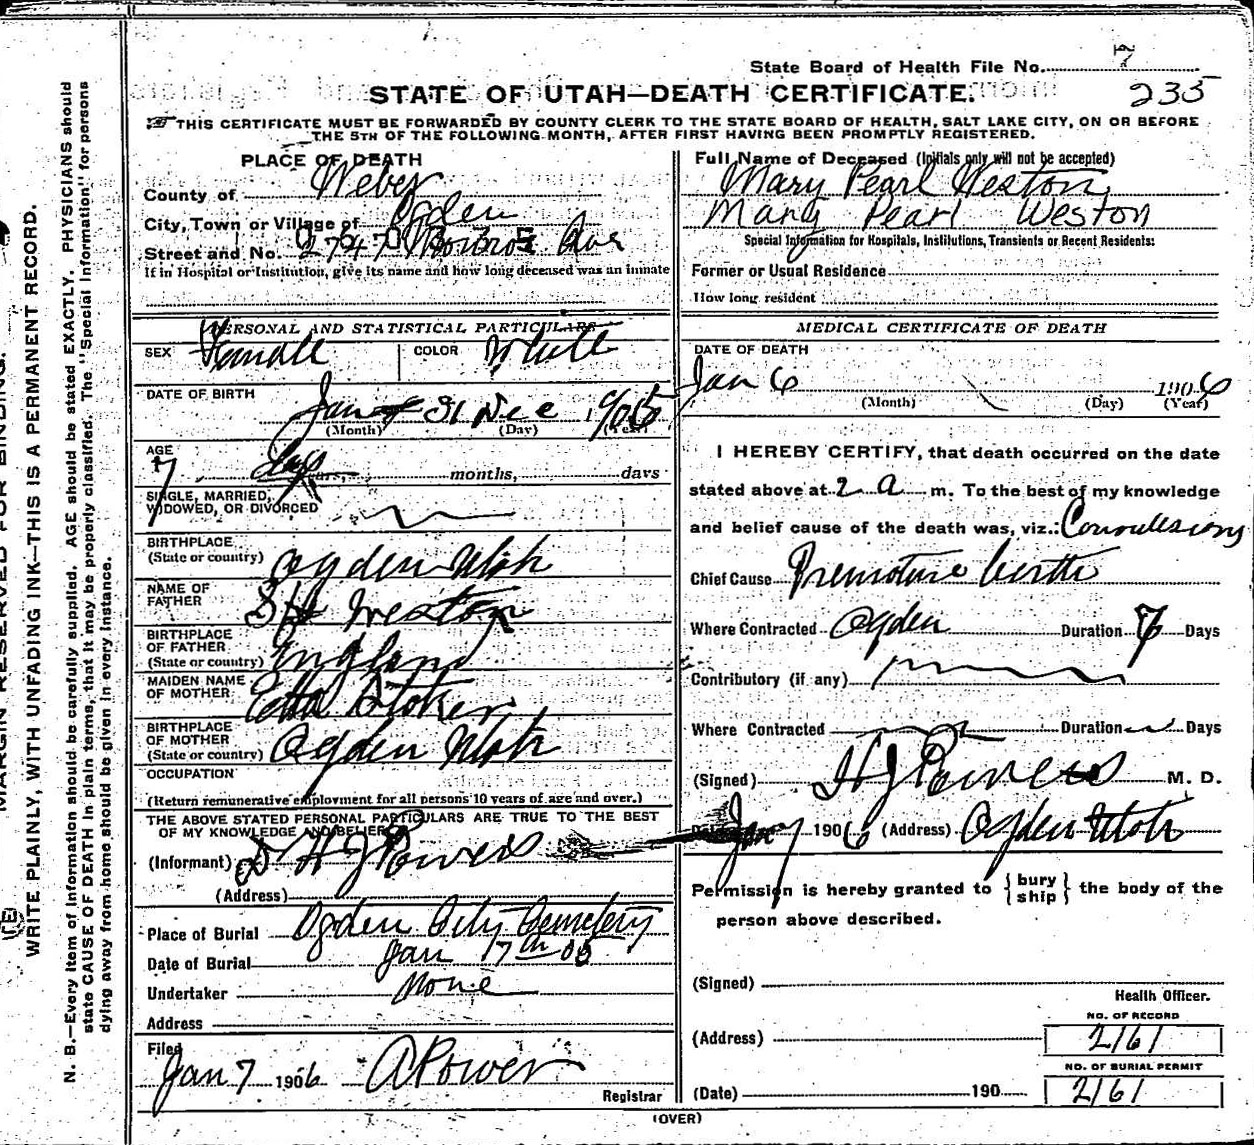 State Board of Health File No. 7
STATE OF UTAH—DEATH CERTIFICATE.
235
THIS CERTIFICATE MUST BE FORWARDED BY COUNTY CLERK TO THE STATE BOARD OF HEALTH, SALT LAKE CITY, ON OR BEFORE
THE 5TH OF THE FOLLOWING MONTH, AFTER FIRST HAVING BEEN PROMPTLY REGISTERED.
PLACE OF DEATH
County of Weber
City, Town or Village of Ogden
Street and No. 2747 Monroe Ave
If in Hospital or Institution, give its name and how long deceased was an inmate
PERSONAL AND STATISTICAL PARTICULARS
SEX Female COLOR White
DATE OF BIRTH Jan 31 Dec 1905
(Month) (Day) (Year)
AGE 7 days months, days
SINGLE, MARRIED,
WIDOWED, OR DIVORCED
BIRTHPLACE
(State or country) Ogden Utah
NAME OF
FATHER S H Weston
BIRTHPLACE
OF FATHER
(State or country) England
MAIDEN NAME
OF MOTHER Etta Stoker
BIRTHPLACE
OF MOTHER
(State or country) Ogden Utah
OCCUPATION
(Return remunerative employment for all persons 10 years of age and over.)
THE ABOVE STATED PERSONAL PARTICULARS ARE TRUE TO THE BEST
OF MY KNOWLEDGE AND BELIEF
(Informant) Dr H J Powers
(Address)
Place of Burial Ogden City Cemetery
Date of Burial Jan 17th 05
Undertaker None
Address
Filed
Jan 7 1906 A Power
Registrar
Full Name of Deceased (Initials only will not be accepted)
Mary Pearl Weston
Mary Pearl Weston
Special Information for Hospitals, Institutions, Transients or Recent Residents:
Former or Usual Residence
How long resident
MEDICAL CERTIFICATE OF DEATH
DATE OF DEATH
Jan 6 1906
(Month) (Day) (Year)
I HEREBY CERTIFY, that death occurred on the date
stated above at 2 a m. To the best of my knowledge
and belief cause of the death was, viz.: Convulsions
Chief Cause Premature birth
Where Contracted Ogden Duration 7 Days
Contributory (if any)
Where Contracted Duration Days
(Signed) H J Powers M. D.
Date Jan 7 1906 (Address) Ogden Utah
Permission is hereby granted to { bury ship } the body of the
person above described.
(Signed)
Health Officer.
NO. OF RECORD
(Address) 2161
NO. OF BURIAL PERMIT
(Date) 190 2161
(OVER)
MARGIN RESERVED FOR BINDING.
WRITE PLAINLY, WITH UNFADING INK—THIS IS A PERMANENT RECORD.
N. B.—Every item of information should be carefully supplied. AGE should be stated EXACTLY. PHYSICIANS should
state CAUSE OF DEATH in plain terms, that it may be properly classified. The "Special Information" for persons
dying away from home should be given in every instance.